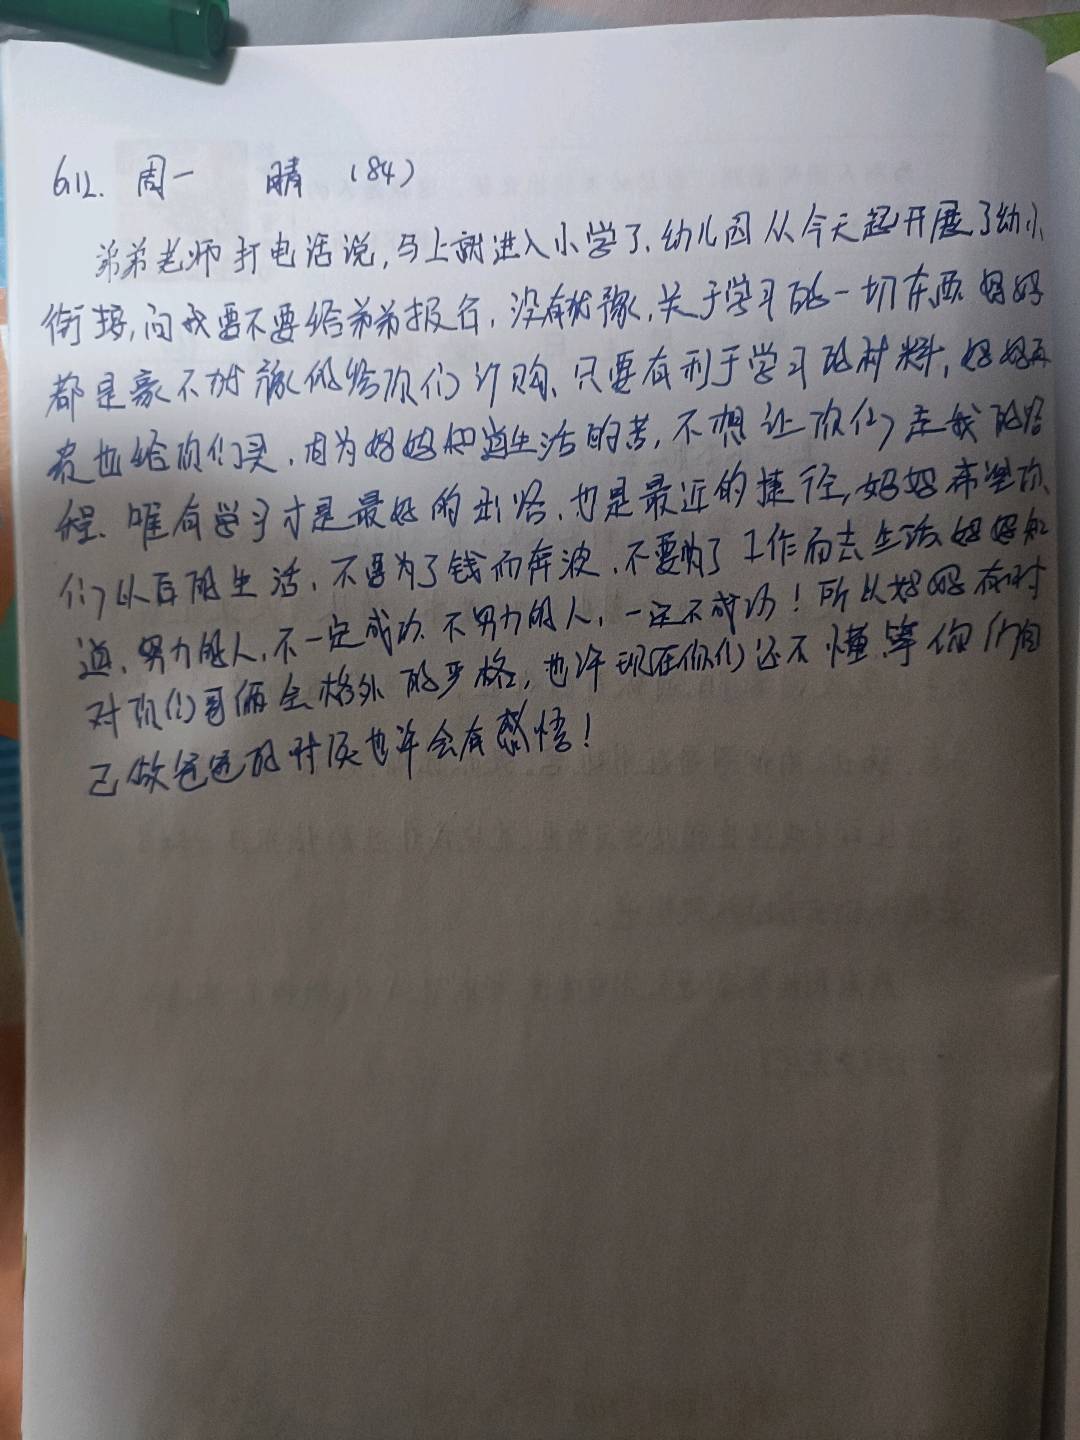 6.12. 周一 晴 (84)
弟弟老师打电话说,马上就进入小学了,幼儿园从今天起开展了幼小
衔接,问我要不要给弟弟报名,没有犹豫,关于学习的一切东西妈妈
都是毫不犹豫的给你们订购、只要有利于学习的材料,妈妈再
贵也给你们买,因为妈妈知道生活的苦,不想让你们走我的路
程、唯有学习才是最好的出路、也是最近的捷径,妈妈希望你
们以后的生活,不要为了钱而奔波、不要为了工作而去生活,妈妈知
道,努力的人,不一定成功、不努力的人,一定不成功!所以妈妈有时
对你们哥俩会格外的严格,也许现在你们还不懂,等你们自
己做爸爸的时候也许会有感悟!